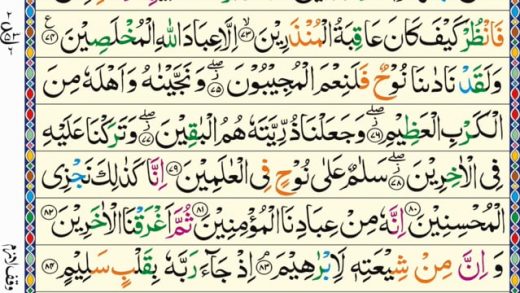 فَانْظُرْ كَيْفَ كَانَ عَاقِبَةُ الْمُنْذَرِيْنَ ۙ﴿۷۳﴾ اِلَّا عِبَادَ اللّٰهِ الْمُخْلَصِيْنَ ﴿۷۴﴾
وَلَقَدْ نَادٰىنَا نُوْحٌ فَلَنِعْمَ الْمُجِيْبُوْنَ ﴿۷۵﴾ وَنَجَّيْنٰهُ وَاَهْلَهٗ مِنَ
الْكَرْبِ الْعَظِيْمِ ﴿۷۶﴾ وَجَعَلْنَا ذُرِّيَّتَهٗ هُمُ الْبٰقِيْنَ ﴿۷۷﴾ وَتَرَكْنَا عَلَيْهِ
فِى الْاٰخِرِيْنَ ﴿۷۸﴾ سَلٰمٌ عَلٰى نُوْحٍ فِى الْعٰلَمِيْنَ ﴿۷۹﴾ اِنَّا كَذٰلِكَ نَجْزِى
الْمُحْسِنِيْنَ ﴿۸۰﴾ اِنَّهٗ مِنْ عِبَادِنَا الْمُؤْمِنِيْنَ ﴿۸۱﴾ ثُمَّ اَغْرَقْنَا الْاٰخَرِيْنَ ﴿۸۲﴾
وَ اِنَّ مِنْ شِيْعَتِهٖ لَاِبْرٰهِيْمَ ﴿۸۳﴾ اِذْ جَآءَ رَبَّهٗ بِقَلْبٍ سَلِيْمٍ ﴿۸۴﴾